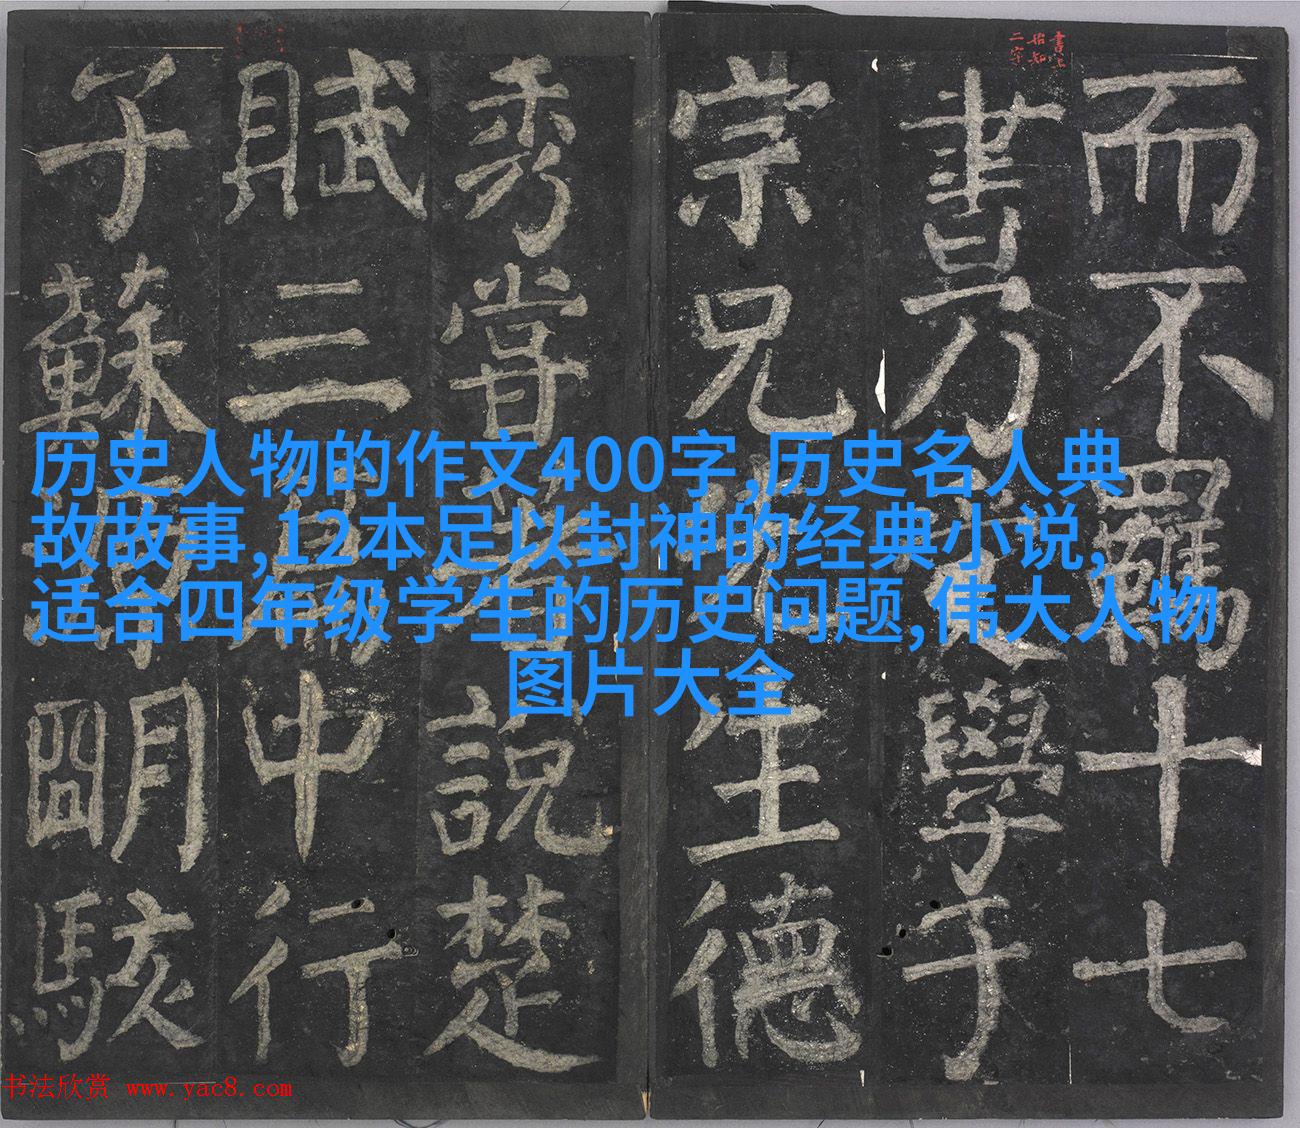 而不羅十七
書乃學于
宗兄生德
秀嘗說楚
賦三中行
子蘇朙駭
历史人物的作文400字,历史名人典
故故事,12本足以封神的经典小说,
适合四年级学生的历史问题,伟大人物
图片大全
书法欣赏 www.yac8.com